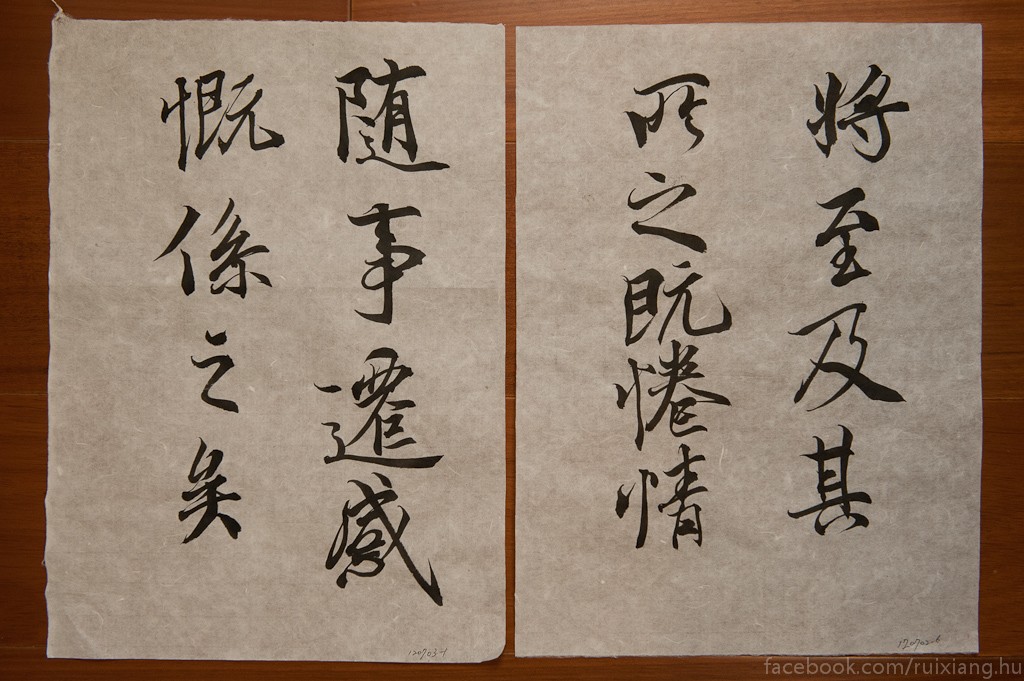 將至及其
所之既惓情
随事遷感
慨係之矣
120702-6
120703-1
facebook.com/ruixiang.hu